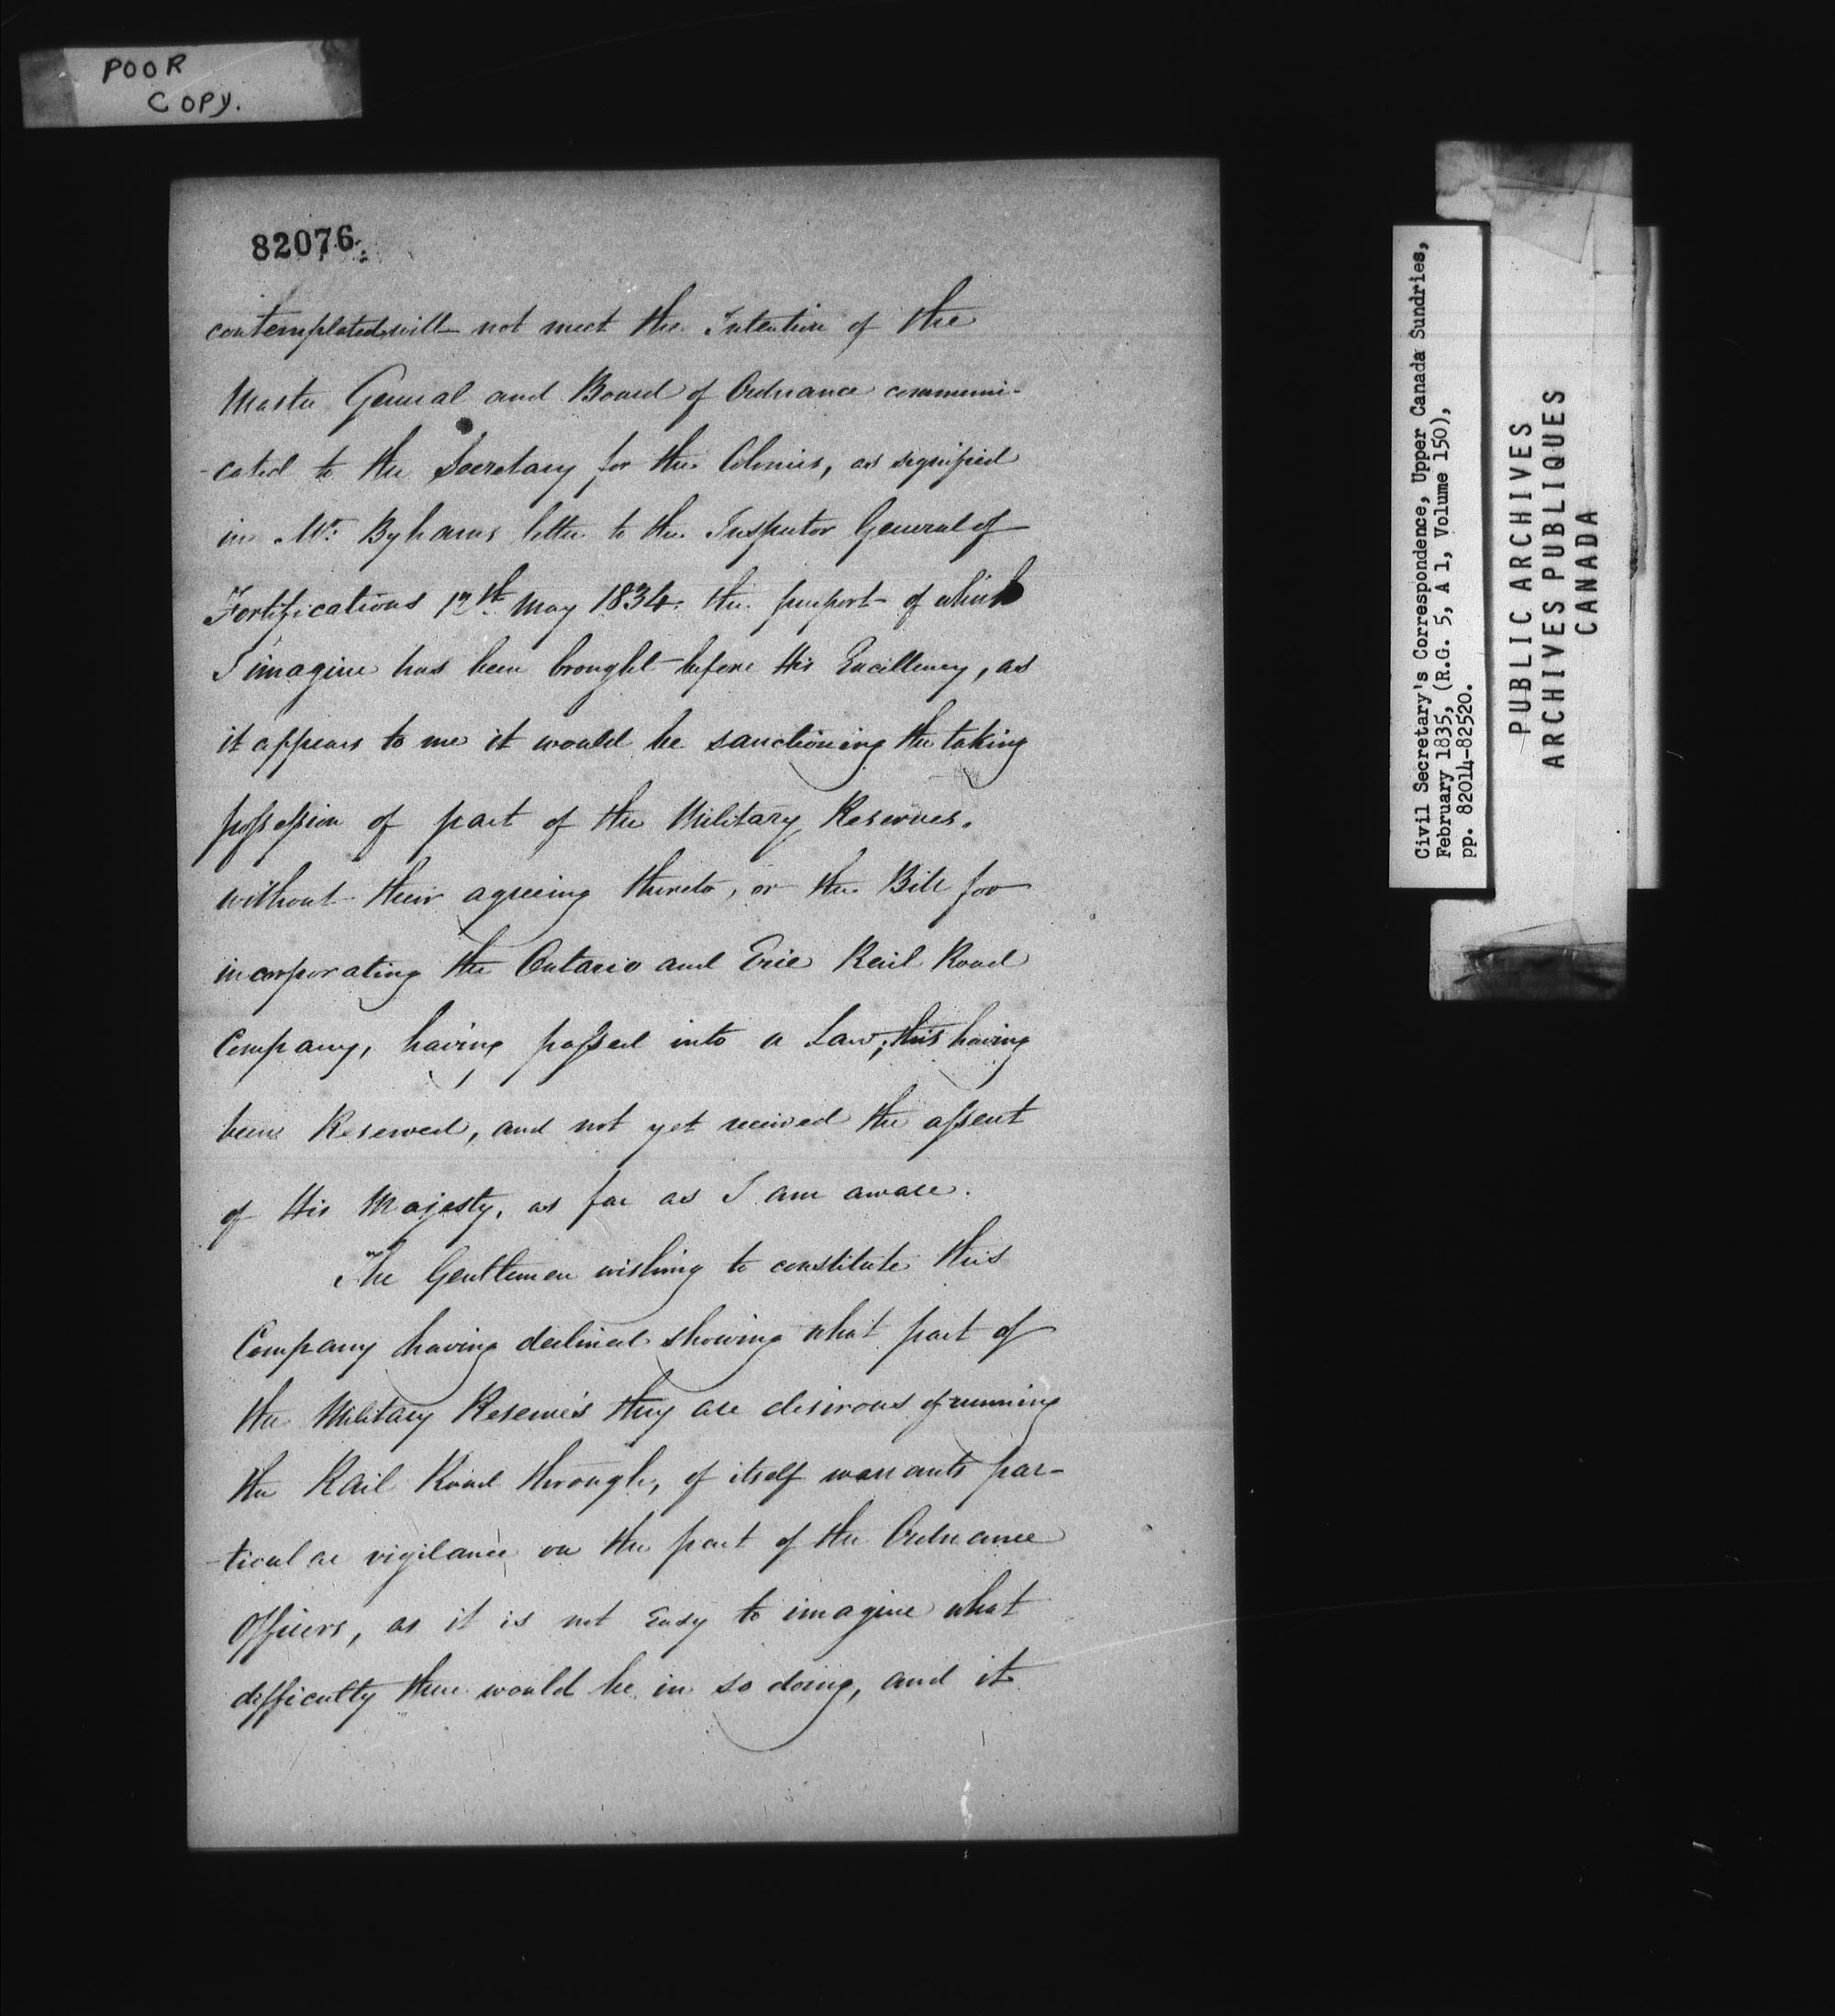 POOR
COPY.
82076
contemplated will not meet the Intention of the
Master General and Board of Ordnance communi-
-cated to the Secretary for the Colonies, as signified
in Mr. Byhams letter to the Inspector General of
Fortifications 17th May 1834. the purport of which
I imagine has been brought before His Excellency, as
it appears to me it would be sanctioning the taking
possession of part of the Military Reserves.
without their agreeing thereto, or the Bill for
incorporating the Ontario and Erie Rail Road
Company, having passed into a Law, this having
been Reserved, and not yet received the assent
of His Majesty, as far as I am aware.
The Gentlemen wishing to constitute this
Company having declined showing what part of
the Military Reserve's they are desirous of running
the Rail Road through, of itself warrants par-
-ticular vigilance on the part of the Ordnance
Officers, as it is not Easy to imagine what
difficulty there would be in so doing, and it
Civil Secretary's Correspondence, Upper Canada Sundries,
February 1835, (R.G. 5, A 1, Volume 150),
pp. 82014-82520.
PUBLIC ARCHIVES
ARCHIVES PUBLIQUES
CANADA